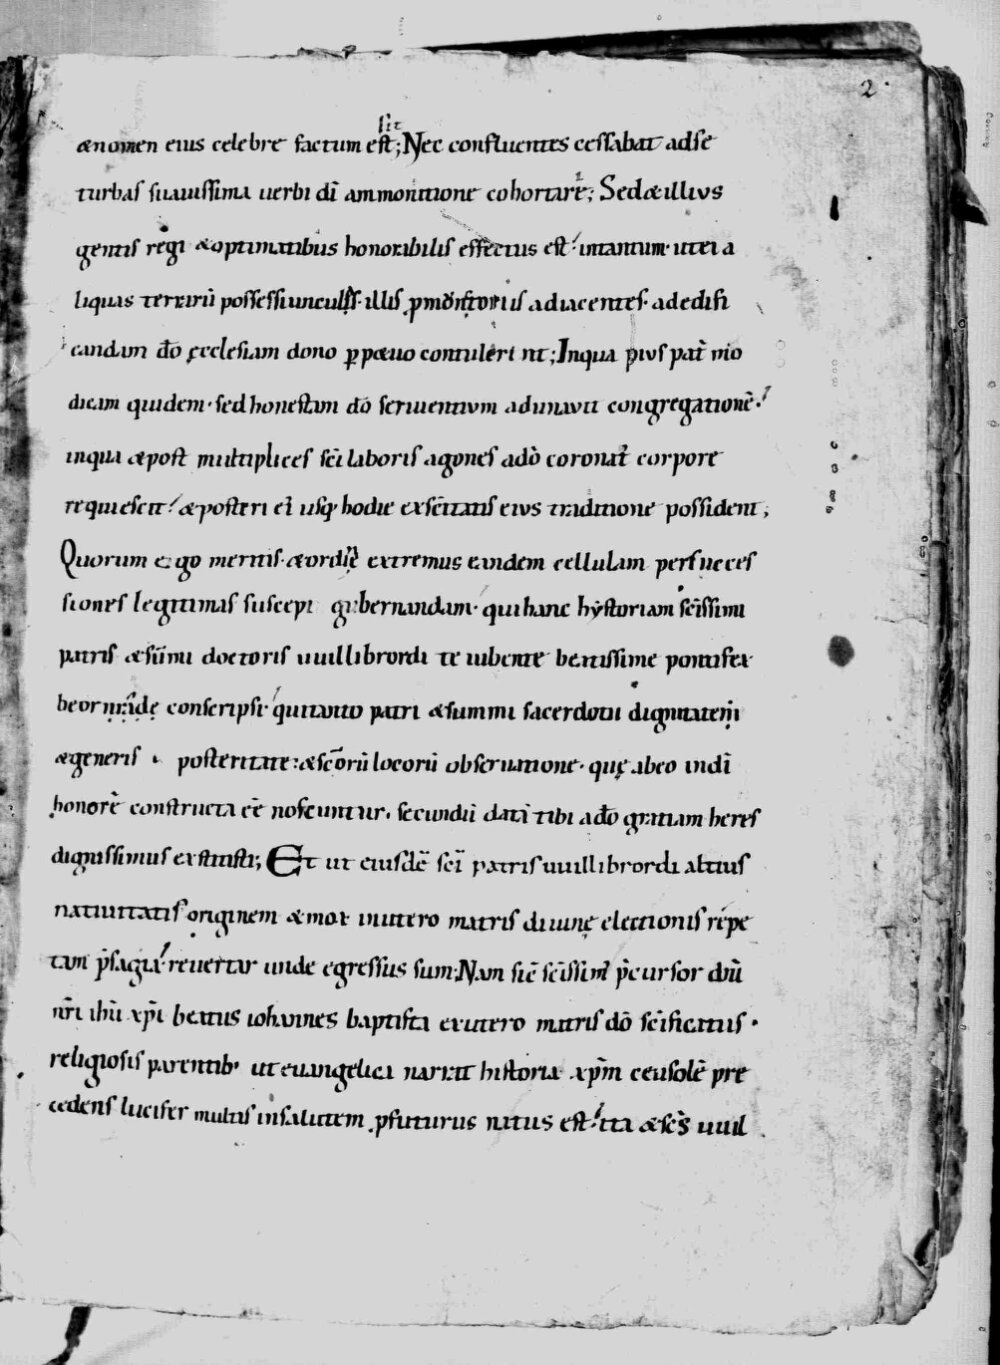 2.
sit
& nomen eius celebre factum est; Nec confluentes cessabat ad se
turbas suauissima uerbi dī ammonitione cohortarē; Sed & illius
gentis regi & optimatibus honorabilis effectus est. intantum. ut ei a
liquas terrarū possessiunculas. illis promontoriis adiacentes. ad edifi
candam dō ęcclesiam dono ꝑp&uo contulerint; In qua pius pat̄ mo
dicam quidem. sed honestam dō seruientium adunauit congregationē.
in qua & post multiplices sc̄i laboris agones a dō coronat̄ corpore
requiescit. & posteri ei usq; hodie ex sc̄itatis eius traditione possident;
Quorum ego meritis. & ordīe extremus eandem cellulam per succes
siones legitimas suscepi gubernandam. qui hanc hystoriam sc̄issimi
patris & sūmi doctoris uuillibrordi te iubente beatissime pontifex
beornrāde conscripsi. qui tanto patri & summi sacerdotii dignitatem
& generis posteritate. & sc̄orū locorū obseruatione. quę ab eo in dī
honorē constructa eē noscuntur. secundū datā tibi a dō gratiam heres
dignissimus exstitisti; Et ut eiusdē sc̄i patris uuillibrordi altius
natiuitatis originem & mox in utero matris diuinę electionis repe
tam p̄sagia. reuertar unde egressus sum. Nam sic sc̄issim' p̄cursor dn̄i
nr̄i ihū xp̄i beatus iohannes baptista ex utero matris dō sc̄ificatus.
religiosis parentib' ut euangelica narrat historia xp̄m ceu solē pre
cedens lucifer multis in salutem ꝓfuturus natus est. ita & sc̄s uuil